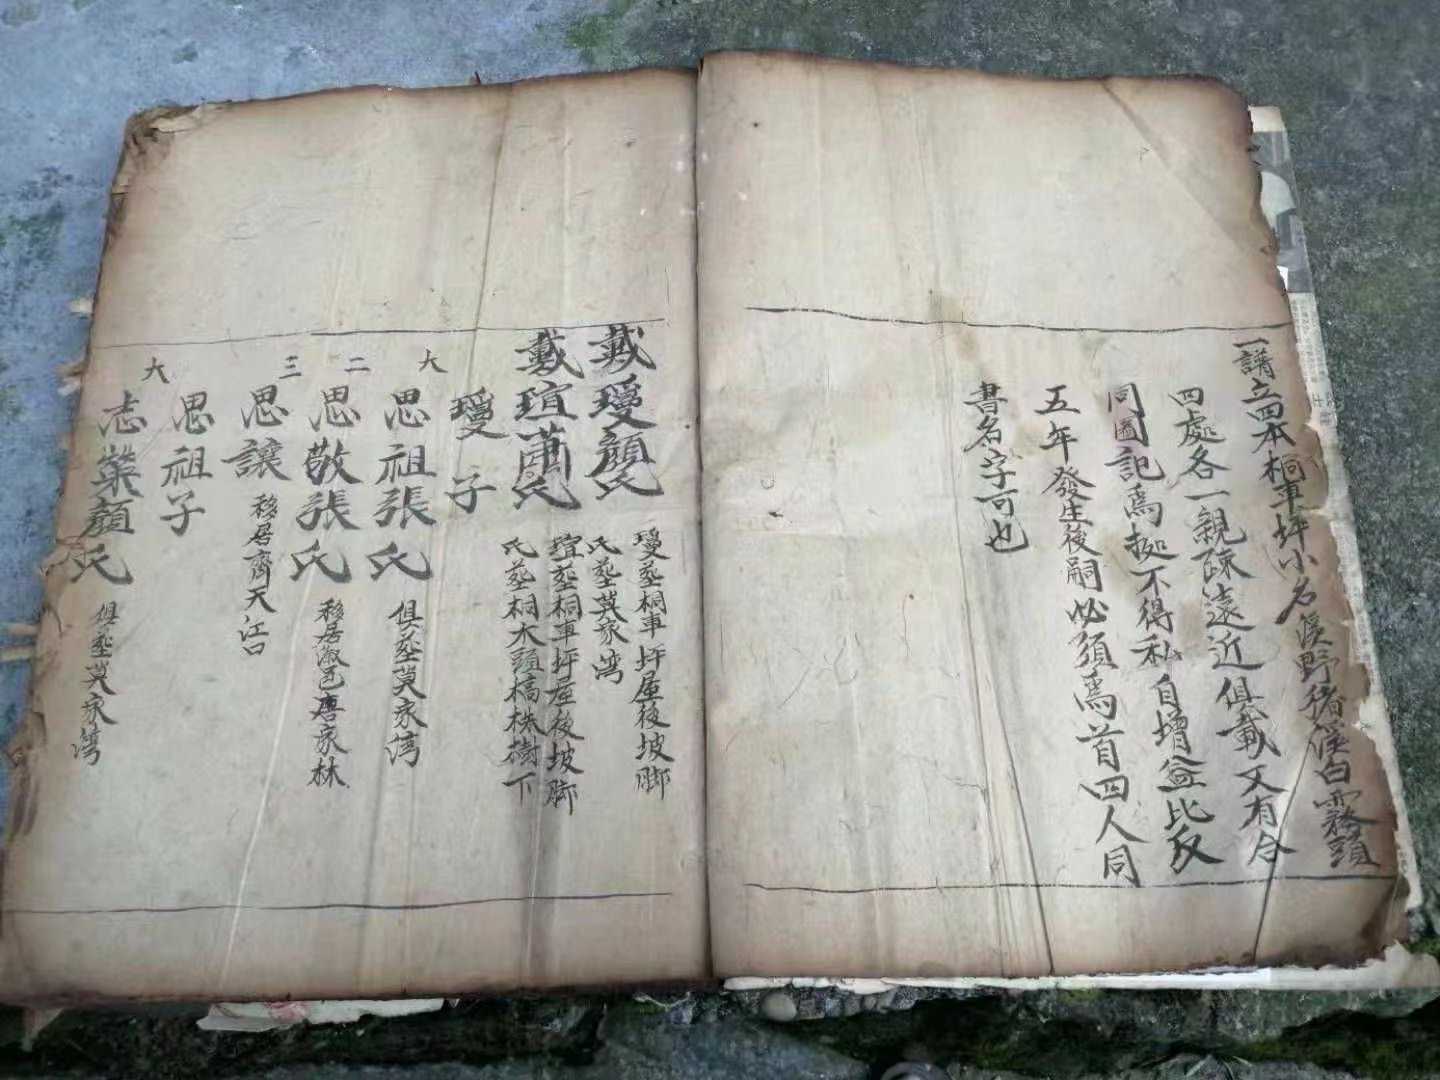 一譜立四本桐車坪小名溪野猪溪白霧頭
四處各一親疎遠近俱載又有合
同圖記爲拠不得私自增益比及
五年發生後嗣必須爲首四人同
書名字可也
戴璦顏氏
璦塟桐車坪屋後坡脚
氏塟莫家湾
戴瑄蕭氏
瑄塟桐車坪屋後坡脚
氏塟桐木頭槁株樹下
璦子
大
思祖張氏 俱塟莫家湾
二
思敬張氏 移居溆邑唐家林
三
思讓 移居齊天江口
思祖子
大
志業顏氏 俱塟莫家湾